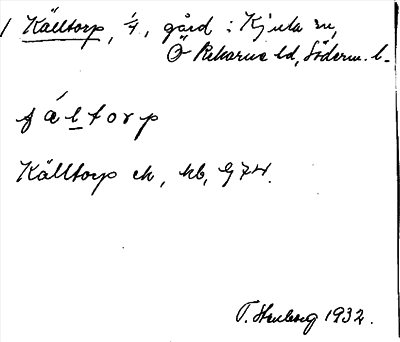 1 Källtorp, 1/4, gård i Kjula sn,
Ö Rekarne hd, Söderm. l.
ɟ á̵ l t o r p
Källtorp ek, hb, G74.
T. Stenberg 1932.